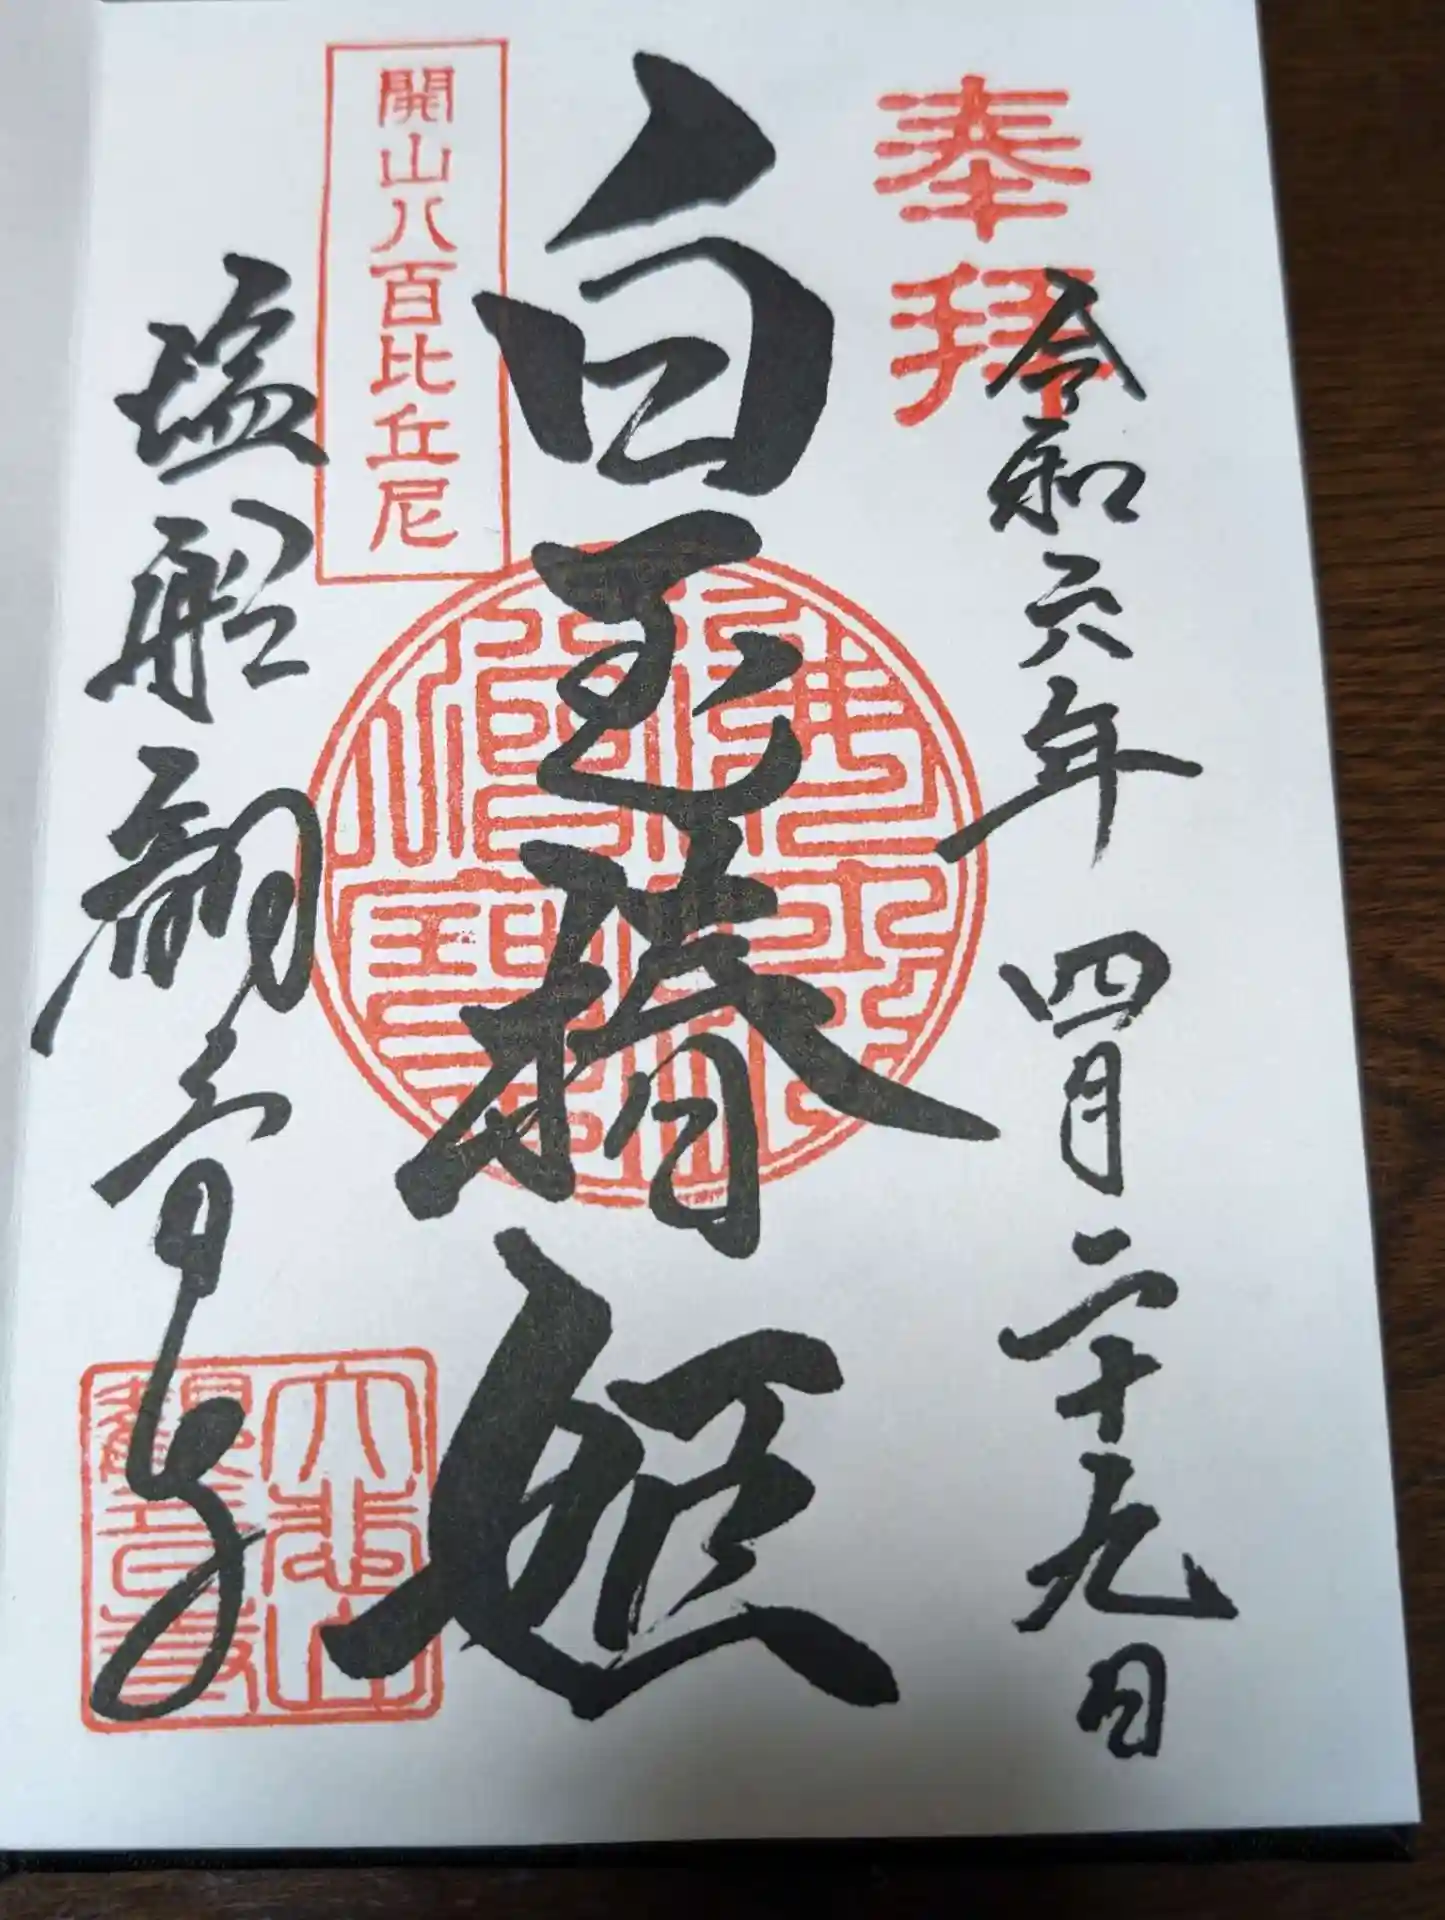 奉拝
令和六年 四月二十九日
白玉椿姫
開山八百比丘尼
塩船観音寺
佛法僧寶
大悲山
観音寺